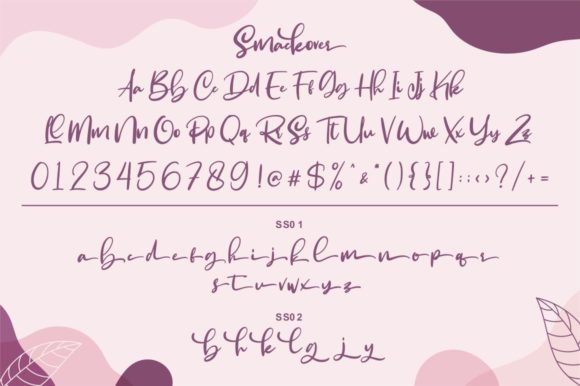 Smackover
Aa Bb Cc Dd Ee Ff Gg Hh Ii Jj Kk
Ll Mm Nn Oo Pp Qq Rr Ss Tt Uu Vv Ww Xx Yy Zz
0123456789!@#$%^&*(){}[]:;<>?/+=
SS01
a b c d e f g h i j k l m n o p q r
s t u v w x y z
SS02
b h k l g j y